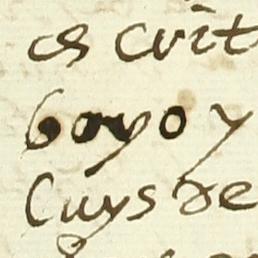 es crit
boyo y
Cuys de